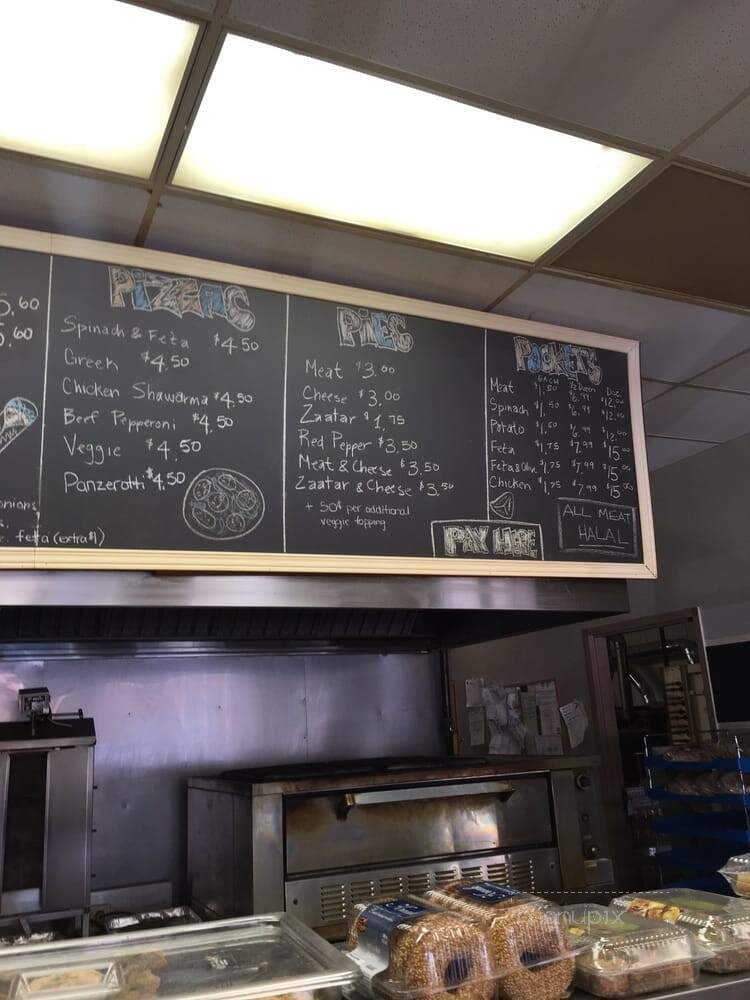 5.60
5.60
onions
feta (extra $1)
PIZZAS
Spinach & Feta $4.50
Greek $4.50
Chicken Shawarma $4.50
Beef Pepperoni $4.50
Veggie $4.50
Panzerotti $4.50
PIES
Meat $3.00
Cheese $3.00
Zaatar $1.75
Red Pepper $3.50
Meat & Cheese $3.50
Zaatar & Cheese $3.50
+ 50¢ per additional
veggie topping
PAY HERE
POCKETS
EACH ½ Dozen Doz.
Meat $1.50 $6.99 $12.00
Spinach $1.50 $6.99 $12.00
Potato $1.50 $6.99 $12.00
Feta $1.75 $7.99 $15.00
Feta & Olive $1.75 $7.99 $15.00
Chicken $1.75 $7.99 $15.00
ALL MEAT
HALAL